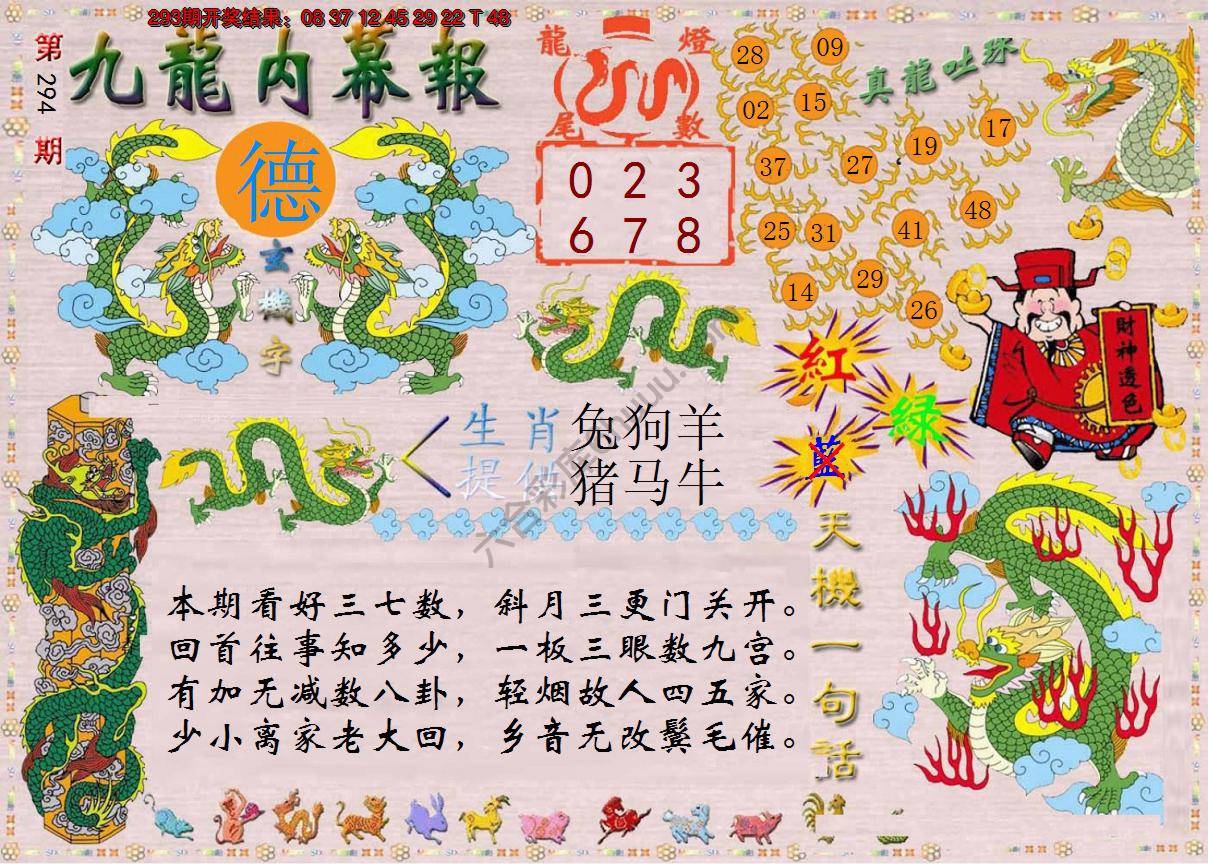 293期开奖结果：08 37 12 45 29 22 T 48
第294期
九龍内幕報
德
玄機字
龍燈
尾數
0 2 3
6 7 8
真龍吐珠
28 09
02 15
37 27 19 17
25 31 41 48
14 29 26
財神透色
紅
綠
藍
生肖 兔狗羊
提供 猪马牛
天機一句話
本期看好三七数，斜月三更门关开。
回首往事知多少，一板三眼数九宫。
有加无减数八卦，轻烟故人四五家。
少小离家老大回，乡音无改鬓毛催。